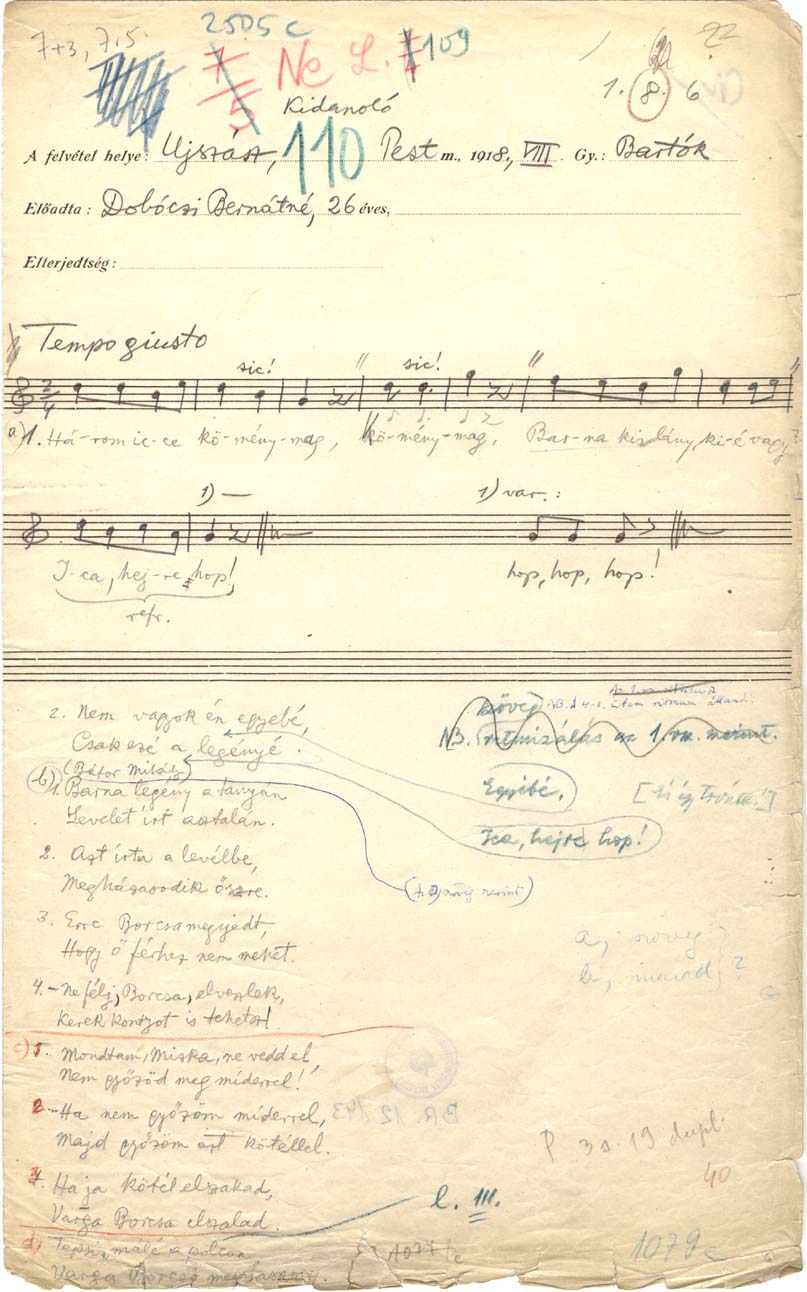 7+3, 7.5.
2505 c
Ne L. 109
22
5
1. 8. 6
Kidanoló
A felvétel helye: Ujszász, Pest m., 1918, VIII. Gy.: Bartók
110
Előadta: Dobóczi Bernátné, 26 éves,
Elterjedtség:
Tempo giusto
sic! sic!
2/4
a) 1. Há-rom ic-ce kö-mény-mag, kö-mény-mag, Bar-na kislány, ki-é vagy?
1) — 1) var.:
I-ca, hej-re, hop! hop, hop, hop!
refr.
2. Nem vagyok én egyebé,
Csak esé a legényé.
(Bátor Mihály)
b) 1. Barna legény a tanyán
Levelet írt asztalán.
2. Azt írta a levélbe,
Megházasodik őszre.
3. Erre Borcsa megijedt,
Hogy ő férhez nem mehet.
4. – Ne félj, Borcsa, elveszlek,
Kerek kontyot is tehetsz!
c) 1. Mondtam, Miska, ne vedd el,
Nem győződ meg míderrel!
2. – Ha nem győzöm míderrel,
Majd győzöm azt kötéllel.
3. Ha ja kötél elszakad,
Varga Borcsa elszalad.
d) Tepsi málé a polcon
Varga Borcsa
szöveg
NB. A 4-5. ütem ritmusa állandó!
NB. ritmizálás az 1. vsz. szerint.
Egyibé.
Ica, hejre hop!
(Az a) szöveg szerint)
a, szöveg
b, marad } ?
BR. 12 143
P 3s. 19 dupl.
40
l. III.
1079 c